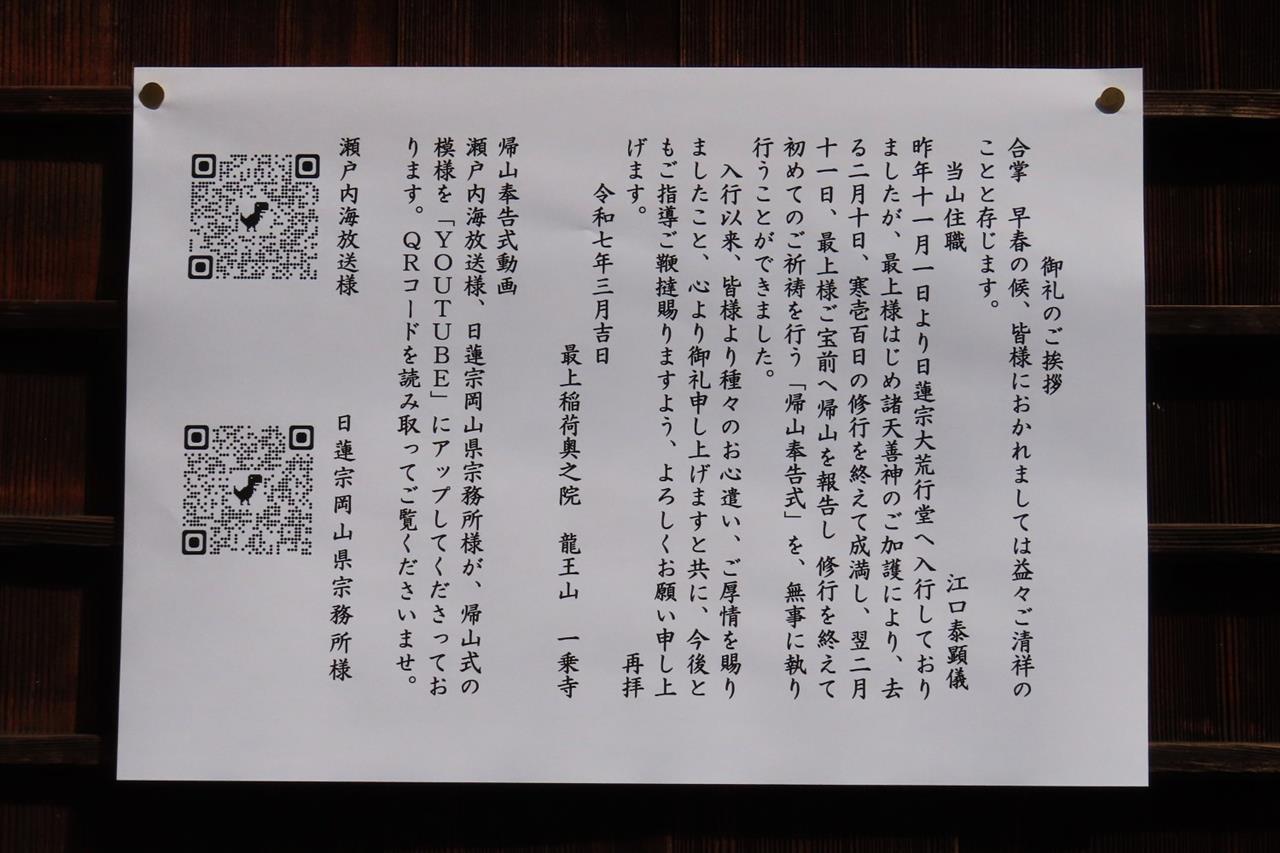 御礼のご挨拶
合掌　早春の候、皆様におかれましては益々ご清祥の
ことと存じます。
当山住職　江口泰顕儀
昨年十一月一日より日蓮宗大荒行堂へ入行しており
ましたが、最上様はじめ諸天善神のご加護により、去
る二月十日、寒壱百日の修行を終えて成満し、翌二月
十一日、最上様ご宝前へ帰山を報告し 修行を終えて
初めてのご祈祷を行う「帰山奉告式」を、無事に執り
行うことができました。
入行以来、皆様より種々のお心遣い、ご厚情を賜り
ましたこと、心より御礼申し上げますと共に、今後と
もご指導ご鞭撻賜りますよう、よろしくお願い申し上
げます。　再拝
令和七年三月吉日
最上稲荷奥之院　龍王山　一乗寺
帰山奉告式動画
瀬戸内海放送様、日蓮宗岡山県宗務所様が、帰山式の
模様を「ＹＯＵＴＵＢＥ」にアップしてくださってお
ります。ＱＲコードを読み取ってご覧くださいませ。
瀬戸内海放送様
日蓮宗岡山県宗務所様